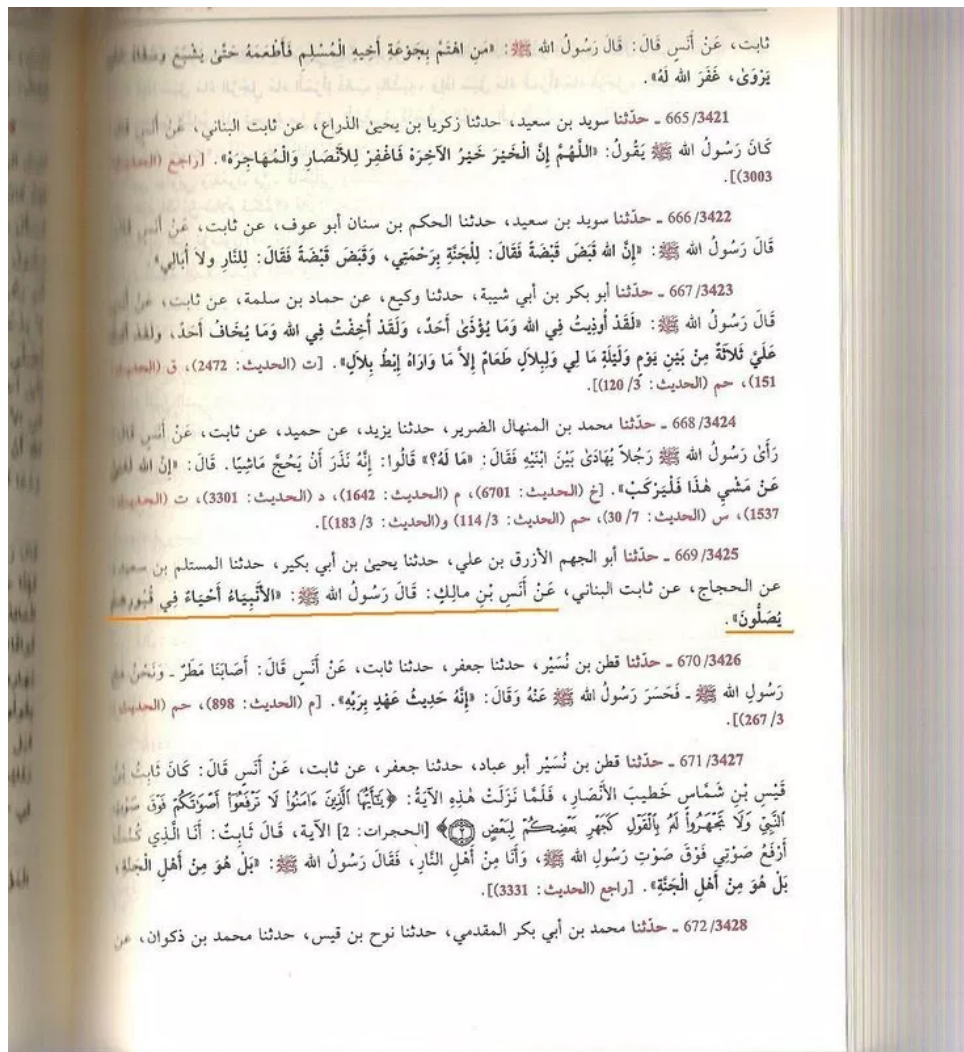 ثابت، عَنْ أَنَسٍ قَالَ: قَالَ رَسُولُ الله ﷺ: «مَنِ اهْتَمَّ بِجَوْعَةِ أَخِيهِ الْمُسْلِمِ فَأَطْعَمَهُ حَتَّىٰ يَشْبَعَ وَسَقَاهُ حَتَّىٰ
يَرْوَىٰ، غَفَرَ الله لَهُ».
665/3421 ـ حدّثنا سويد بن سعيد، حدثنا زكريا بن يحيىٰ الذراع، عن ثابت البناني، عَنْ أَنَسٍ قَالَ:
كَانَ رَسُولُ الله ﷺ يَقُولُ: «اللَّهُمَّ إِنَّ الْخَيْرَ خَيْرُ الآخِرَهْ فَاغْفِرْ لِلأَنْصَارِ وَالْمُهَاجِرَهْ». [راجع (الحديث:
3003)].
666/3422 ـ حدّثنا سويد بن سعيد، حدثنا الحكم بن سنان أبو عوف، عن ثابت، عَنْ أَنَسٍ قَالَ:
قَالَ رَسُولُ الله ﷺ: «إِنَّ الله قَبَضَ قَبْضَةً فَقَالَ: لِلْجَنَّةِ بِرَحْمَتِي، وَقَبَضَ قَبْضَةً فَقَالَ: لِلنَّارِ ولا أُبَالِي».
667/3423 ـ حدّثنا أبو بكر بن أبي شيبة، حدثنا وكيع، عن حماد بن سلمة، عن ثابت، عَنْ أَنَسٍ
قَالَ رَسُولُ الله ﷺ: «لَقَدْ أُوذِيتُ فِي الله وَمَا يُؤْذَىٰ أَحَدٌ، وَلَقَدْ أُخِفْتُ فِي الله وَمَا يُخَافُ أَحَدٌ، وَلَقَدْ أَتَتْ
عَلَيَّ ثَلاَثَةٌ مِنْ بَيْنِ يَوْمٍ وَلَيْلَةٍ مَا لِي وَلِبِلاَلٍ طَعَامٌ إِلاَّ مَا وَارَاهُ إِبْطُ بِلاَلٍ». [ت (الحديث: 2472)، ق (الحديث:
151)، حم (الحديث: 3/120)].
668/3424 ـ حدّثنا محمد بن المنهال الضرير، حدثنا يزيد، عن حميد، عن ثابت، عَنْ أَنَسٍ قَالَ:
رَأَىٰ رَسُولُ الله ﷺ رَجُلاً يُهَادَىٰ بَيْنَ ابْنَيْهِ فَقَالَ: «مَا لَهُ؟» قَالُوا: إِنَّهُ نَذَرَ أَنْ يَحُجَّ مَاشِيًا. قَالَ: «إِنَّ الله لَغَنِيٌّ
عَنْ مَشْيِ هٰذَا فَلْيَرْكَبْ». [خ (الحديث: 6701)، م (الحديث: 1642)، د (الحديث: 3301)، ت (الحديث:
1537)، س (الحديث: 7/30)، حم (الحديث: 3/114) و(الحديث: 3/183)].
669/3425 ـ حدّثنا أبو الجهم الأزرق بن علي، حدثنا يحيىٰ بن أبي بكير، حدثنا المستلم بن سعيد،
عن الحجاج، عن ثابت البناني، عَنْ أَنَسِ بْنِ مالِكٍ: قَالَ رَسُولُ الله ﷺ: «الأَنْبِيَاءُ أَحْيَاءٌ فِي قُبُورِهِمْ
يُصَلُّونَ».
670/3426 ـ حدّثنا قطن بن نُسَيْر، حدثنا جعفر، حدثنا ثابت، عَنْ أَنَسٍ قَالَ: أَصَابَنَا مَطَرٌ ـ وَنَحْنُ مَعَ
رَسُولِ الله ﷺ ـ فَحَسَرَ رَسُولُ الله ﷺ عَنْهُ وَقَالَ: «إِنَّهُ حَدِيثُ عَهْدٍ بِرَبِّهِ». [م (الحديث: 898)، حم (الحديث:
3/267)].
671/3427 ـ حدّثنا قطن بن نُسَيْر أبو عباد، حدثنا جعفر، عن ثابت، عَنْ أَنَسٍ قَالَ: كَانَ ثَابِتُ بْنُ
قَيْسِ بْنِ شَمَّاسٍ خَطِيبَ الأَنْصَارِ، فَلَمَّا نَزَلَتْ هٰذِهِ الآيَةُ: ﴿يَٰٓأَيُّهَا ٱلَّذِينَ ءَامَنُوا۟ لَا تَرْفَعُوٓا۟ أَصْوَٰتَكُمْ فَوْقَ صَوْتِ
ٱلنَّبِيِّ وَلَا تَجْهَرُوا۟ لَهُۥ بِٱلْقَوْلِ كَجَهْرِ بَعْضِكُمْ لِبَعْضٍ ۝٢﴾ [الحجرات: 2] الآية، قَالَ ثَابِتٌ: أَنَا الَّذِي كُنْتُ
أَرْفَعُ صَوْتِي فَوْقَ صَوْتِ رَسُولِ الله ﷺ، وَأَنَا مِنْ أَهْلِ النَّارِ، فَقَالَ رَسُولُ الله ﷺ: «بَلْ هُوَ مِنْ أَهْلِ الْجَنَّةِ،
بَلْ هُوَ مِنْ أَهْلِ الْجَنَّةِ». [راجع (الحديث: 3331)].
672/3428 ـ حدّثنا محمد بن أبي بكر المقدمي، حدثنا نوح بن قيس، حدثنا محمد بن ذكوان، عن